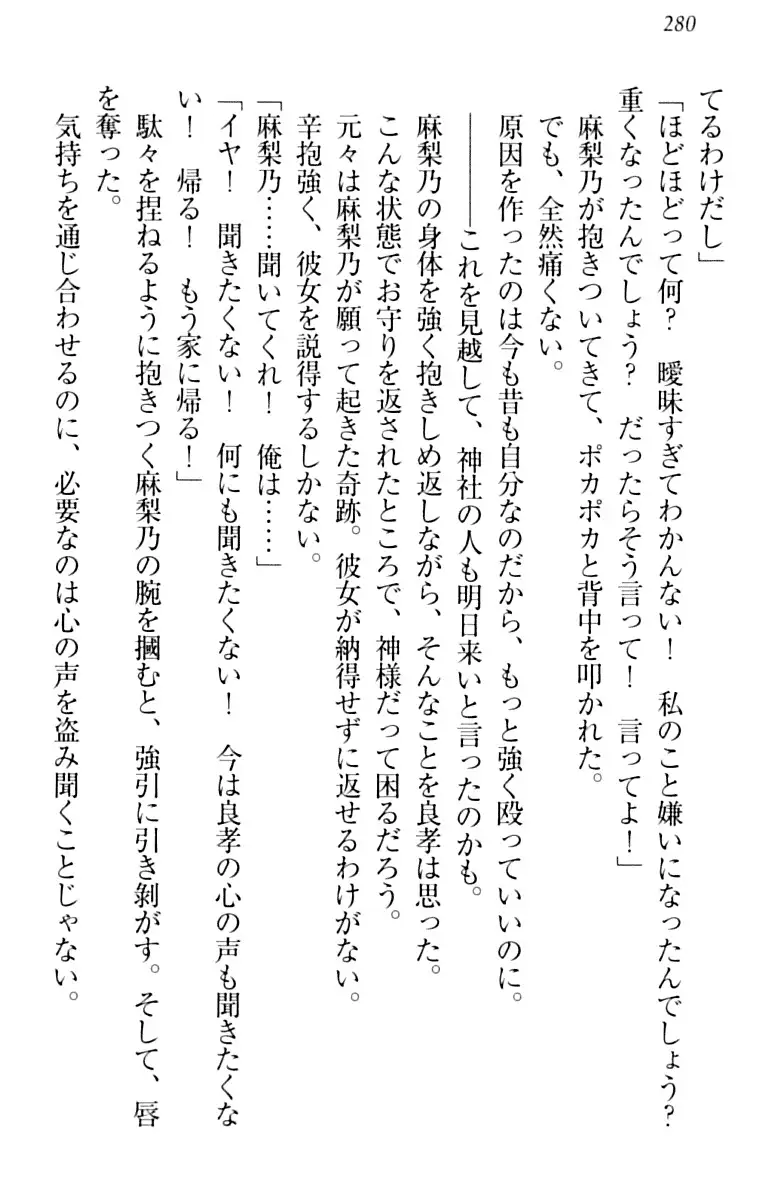 280
てるわけだし」
「ほどほどって何？　曖昧すぎてわかんない！　私のこと嫌いになったんでしょう？
重くなったんでしょう？　だったらそう言って！　言ってよ！」
麻梨乃が抱きついてきて、ポカポカと背中を叩かれた。
でも、全然痛くない。
原因を作ったのは今も昔も自分なのだから、もっと強く殴っていいのに。
――――これを見越して、神社の人も明日来いと言ったのかも。
麻梨乃の身体を強く抱きしめ返しながら、そんなことを良孝は思った。
こんな状態でお守りを返されたところで、神様だって困るだろう。
元々は麻梨乃が願って起きた奇跡。彼女が納得せずに返せるわけがない。
辛抱強く、彼女を説得するしかない。
「麻梨乃……聞いてくれ！　俺は……」
「イヤ！　聞きたくない！　何にも聞きたくない！　今は良孝の心の声も聞きたくな
い！　帰る！　もう家に帰る！」
駄々を捏ねるように抱きつく麻梨乃の腕を摑むと、強引に引き剝がす。そして、唇
を奪った。
気持ちを通じ合わせるのに、必要なのは心の声を盗み聞くことじゃない。